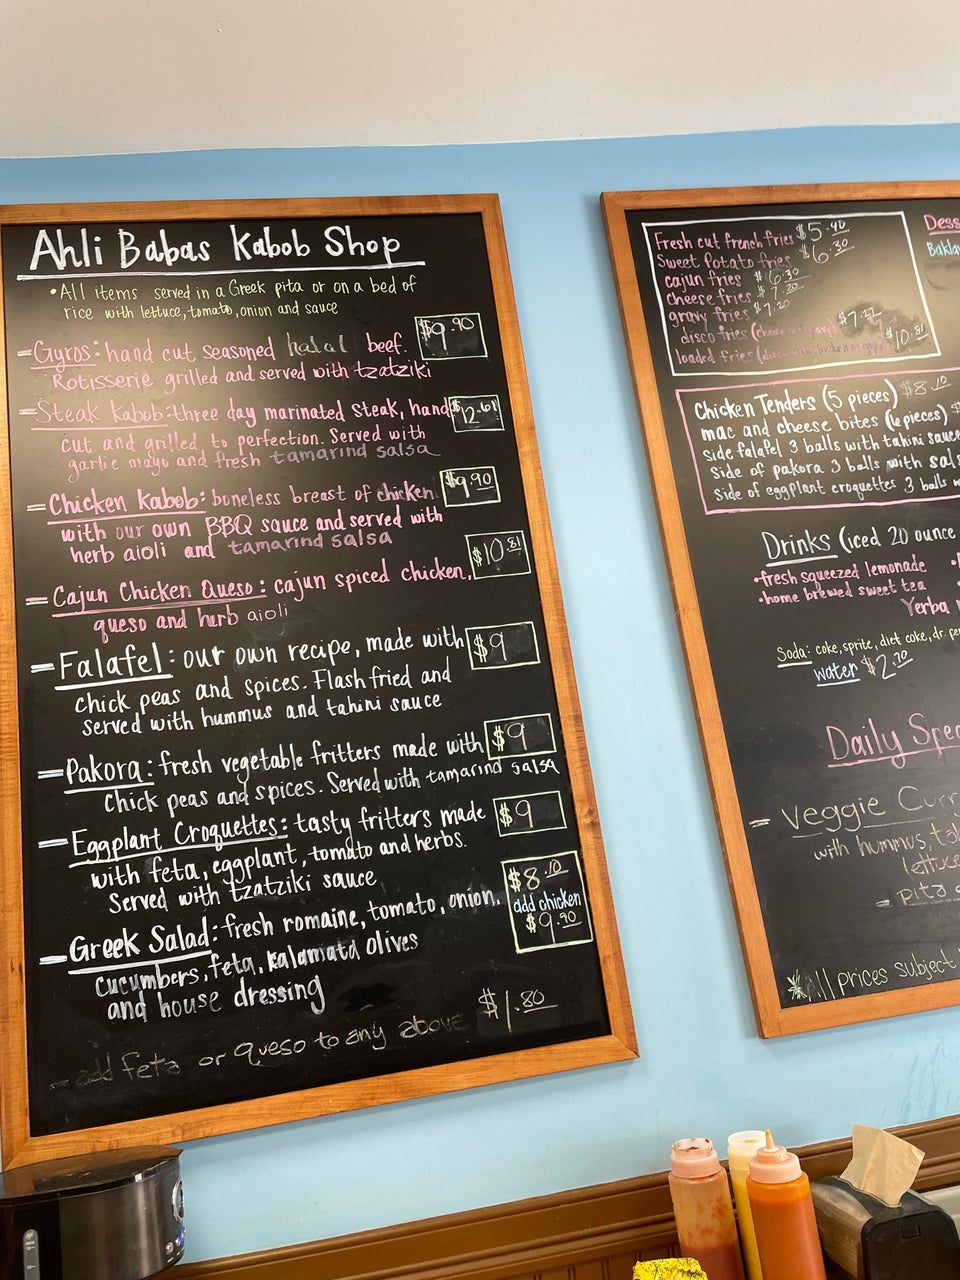 Ahli Babas Kabob Shop
•All items served in a Greek pita or on a bed of
rice with lettuce, tomato, onion and sauce
Gyros: hand cut seasoned halal beef. $9.90
Rotisserie grilled and served with tzatziki
Steak Kabob: three day marinated steak, hand $12.61
cut and grilled to perfection. Served with
garlic mayo and fresh tamarind salsa
Chicken Kabob: boneless breast of chicken $9.90
with our own BBQ sauce and served with
herb aioli and tamarind salsa
Cajun Chicken Queso: cajun spiced chicken, $10.81
queso and herb aioli
Falafel: our own recipe, made with $9
chick peas and spices. Flash fried and
served with hummus and tahini sauce
Pakora: fresh vegetable fritters made with $9
chick peas and spices. Served with tamarind salsa
Eggplant Croquettes: tasty fritters made $9
with feta, eggplant, tomato and herbs.
Served with tzatziki sauce
Greek Salad: fresh romaine, tomato, onion, $8.10
cucumbers, feta, kalamata olives add chicken
and house dressing $9.90
add feta or queso to any above $1.80
Fresh cut french fries $5.40
Sweet Potato fries $6.30
cajun fries $6.30
cheese fries $7.20
gravy fries $7.20
disco fries
loaded fries
Chicken Tenders (5 pieces) $8.10
mac and cheese bites (6 pieces) $
side falafel 3 balls with tahini sauce
Side of pakora 3 balls with sals
Side of eggplant croquettes 3 balls w
Drinks (iced 20 ounce
•fresh squeezed lemonade
•home brewed sweet tea
Yerba
Soda: coke, sprite, diet coke, dr. pe
water $2.70
Dess
Bakla
Daily Spec
Veggie Curr
with hummus,
lettuce
pita
All prices subject